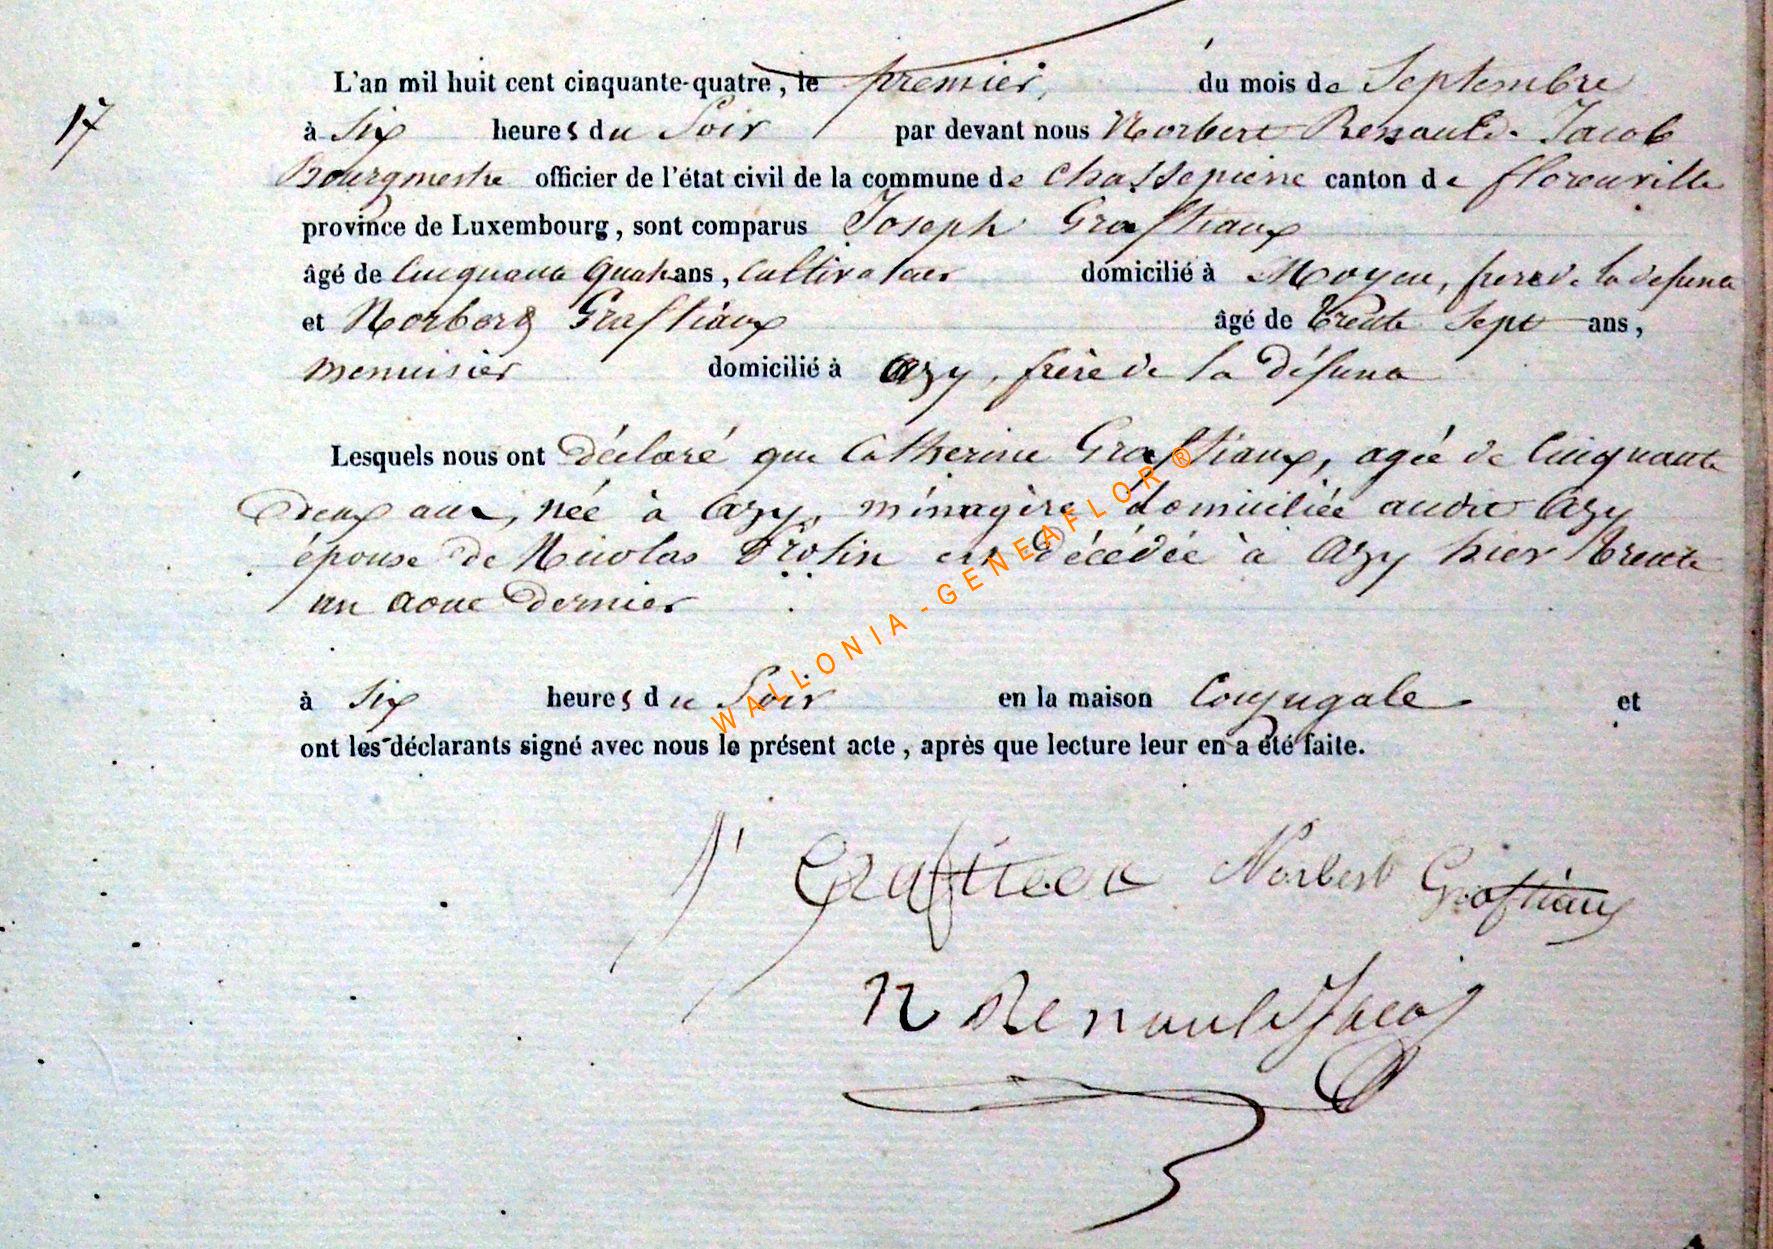 L'an mil huit cent cinquante-quatre, le premier, du mois de Septembre
17
à Six heures du Soir par devant nous Norbert Renauld-Jacob
Bourgmestre officier de l'état civil de la commune de Chassepierre canton de florenville
province de Luxembourg, sont comparus Joseph Graftiaux
âgé de Cinquante Quatre ans, Cultivateur domicilié à Moyen, frere de la defunte
et Norbert Graftiaux âgé de trente Sept ans,
menuisier domicilié à Azy, frère de la défunte
Lesquels nous ont déclaré que Catherine Graftiaux, agée de Cinquante
Deux ans, née à Azy, ménagère domiciliée audit Azy
épouse de Nicolas Frotin est décédée à Azy hier trente
un aout Dernier
à Six heures du Soir en la maison Conjugale et
ont les déclarants signé avec nous le présent acte, après que lecture leur en a été faite.
J Graftieux Norbert Graftiaux
N Renauld Jacob
WALLONIA - GENEAFLOR ®